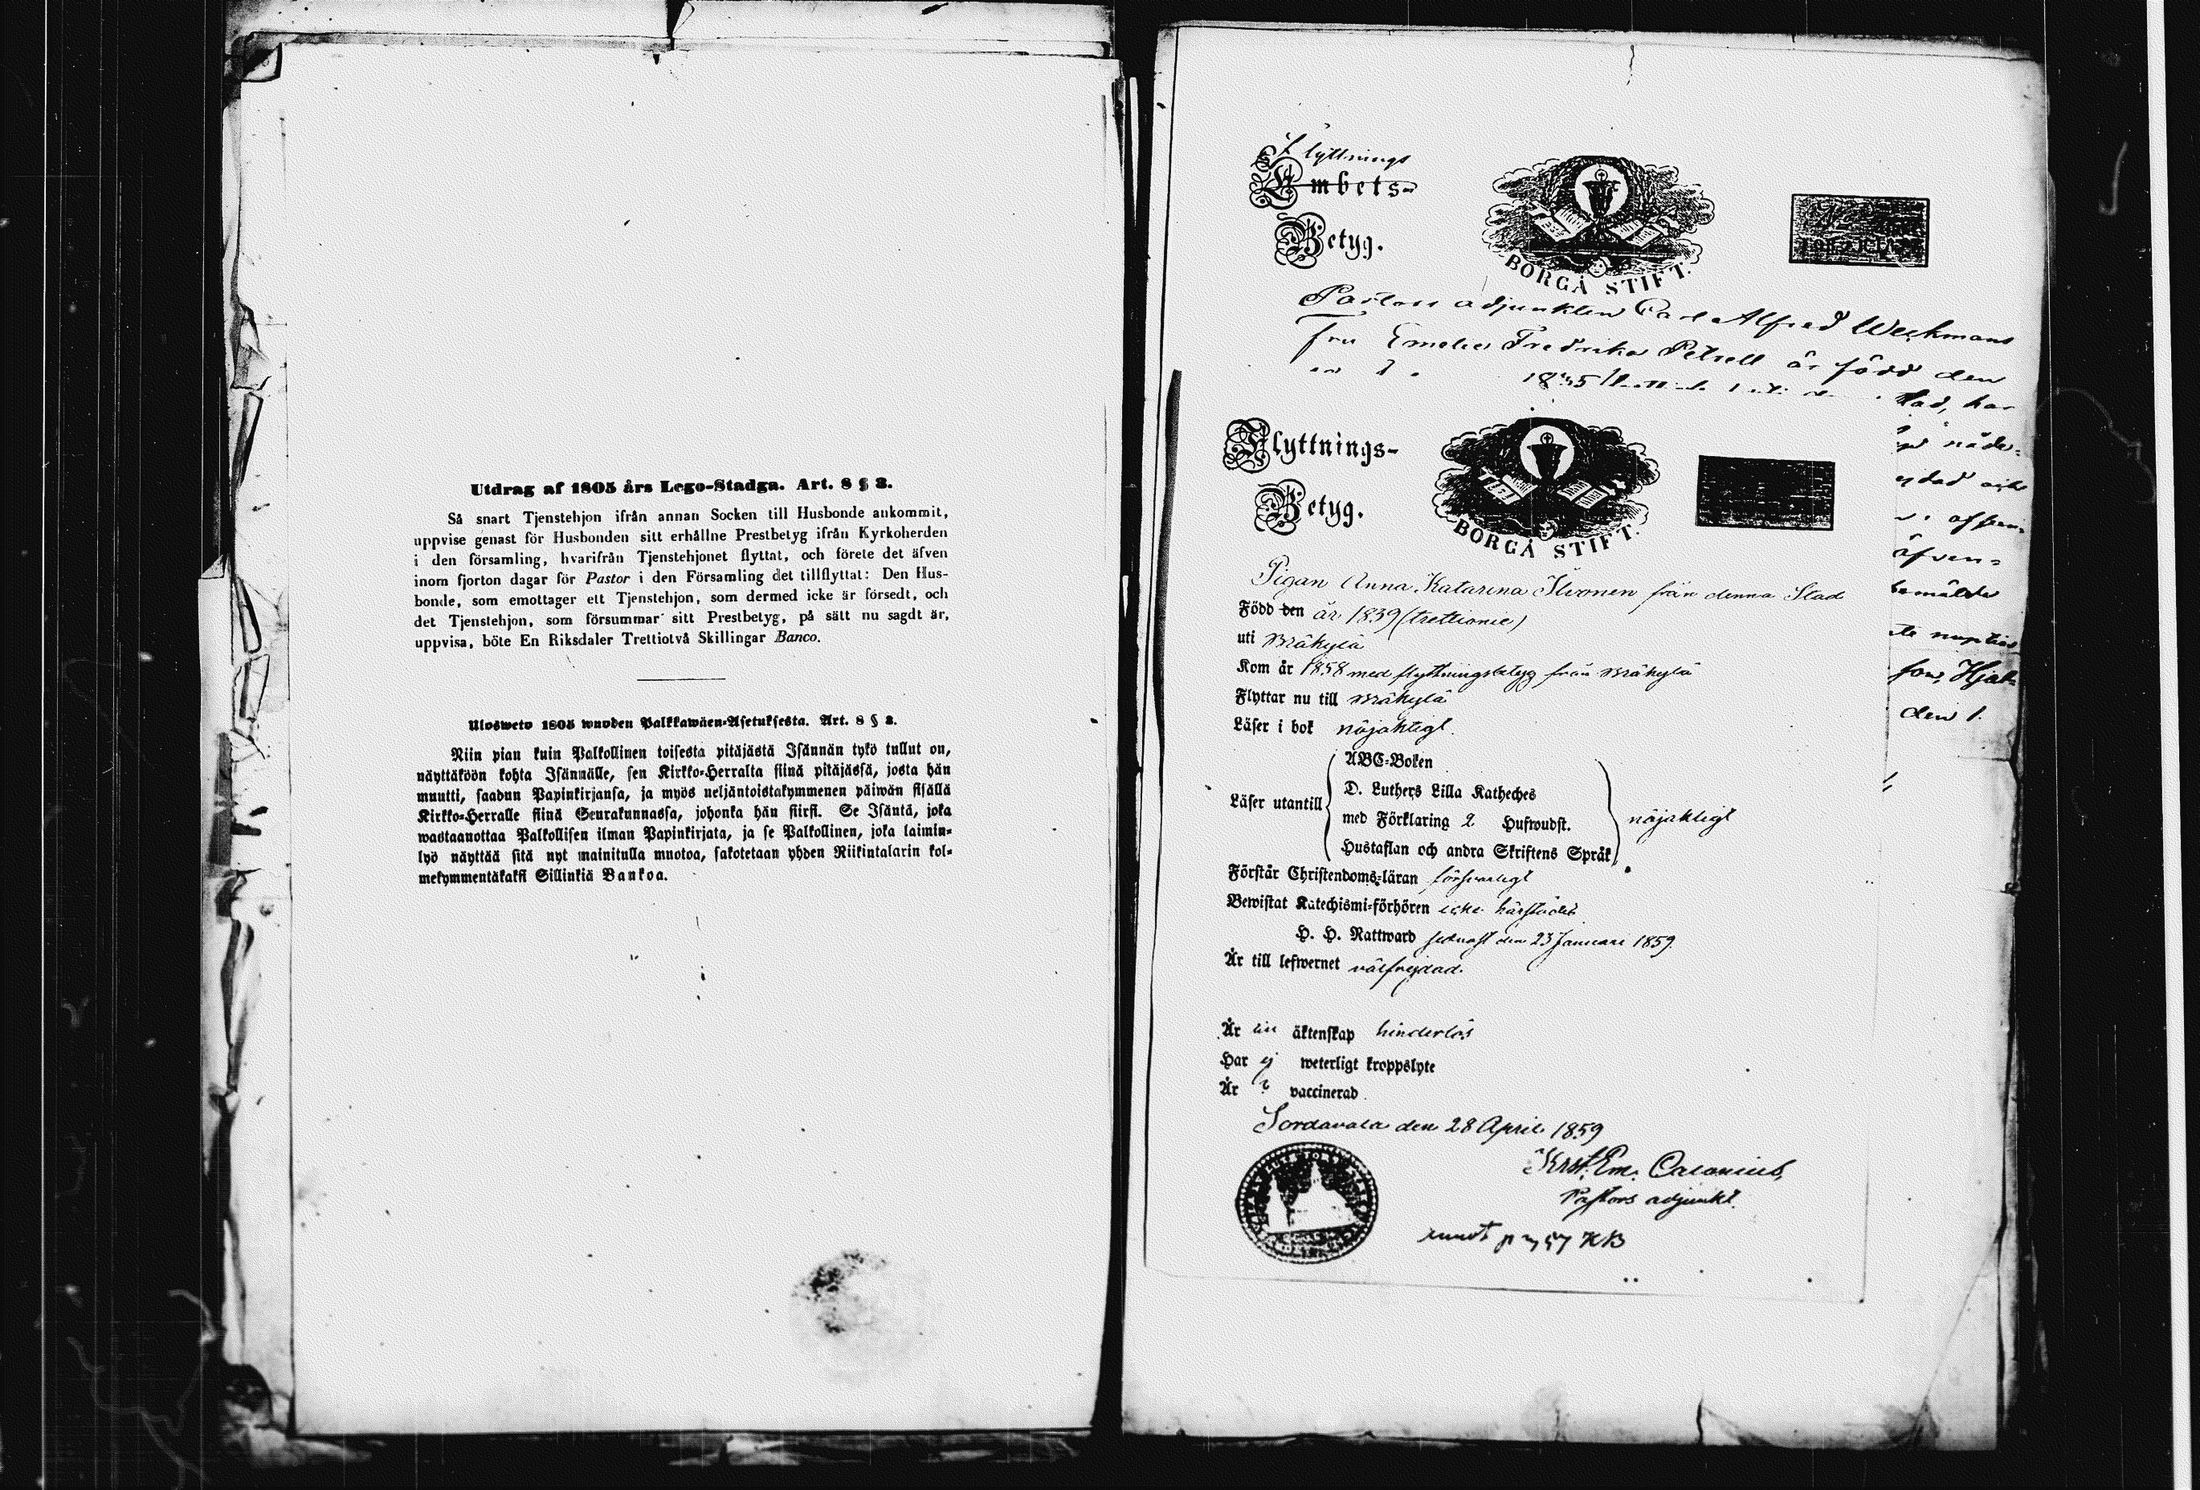 Utdrag af 1805 års Lego-Stadga. Art. 8 § 3.
Så snart Tjenstehjon ifrån annan Socken till Husbonde ankommit,
uppvise genast för Husbonden sitt erhållne Prestbetyg ifrån Kyrkoherden
i den församling, hvarifrån Tjenstehjonet flyttat, och förete det äfven
inom fjorton dagar för Pastor i den Församling det tillflyttat: Den Hus-
bonde, som emottager ett Tjenstehjon, som dermed icke är försedt, och
det Tjenstehjon, som försummar sitt Prestbetyg, på sätt nu sagdt är,
uppvisa, böte En Riksdaler Trettiotvå Skillingar Banco.
Ulosweto 1805 wuoden Palkkawäen-Asetuksesta. Art. 8 § 3.
Niin pian kuin Palkollinen toisesta pitäjästä Isännän tykö tullut on,
näyttäköön kohta Isännälle, sen Kirkko-Herralta siinä pitäjässä, josta hän
muutti, saadun Papinkirjansa, ja myös neljäntoistakymmenen päiwän sisällä
Kirkko-Herralle siinä Seurakunnassa, johonka hän siirsi. Se Isäntä, joka
wastaanottaa Palkollisen ilman Papinkirjata, ja se Palkollinen, joka laimin-
lyö näyttää sitä nyt mainitulla muotoa, sakotetaan yhden Riikintalarin kol-
mekymmentäkaksi Sillinkiä Bankoa.
Flyttnings
Ambets-
Betyg.
BORGÅ STIFT.
Pastors adjunkten Carl Alfred Weckmans
Fru Emelie Fredrika Petrell är född den
stad, har
Flyttnings-
Betyg.
BORGÅ STIFT.
äfven-
bemälde
den 1.
Pigan Anna Katarina Ilvonen från denna Stad
Född den år 1839 (trettionie)
uti Bräkylä
Kom år 1858 med flyttningsbetyg från Bräkylä
Flyttar nu till Bräkylä
Läser i bok nöjaktigt.
ABC-Boken
Läser utantill D. Luthers Lilla Katheches
med Förklaring 2 Hufwudst. nöjaktligt
Hustaflan och andra Skriftens Språk
Förstår Christendoms-läran försvarligt
Bewistat Katechismi-förhören icke härstädes
H. H. Nattward sednast den 23 Januari 1859.
Är till lefwernet välfrejdad.
Är till äktenskap hinderlös
Har ej weterligt kroppslyte
Är vaccinerad
Sordavala den 28 April 1859
Pastors adjunkt.